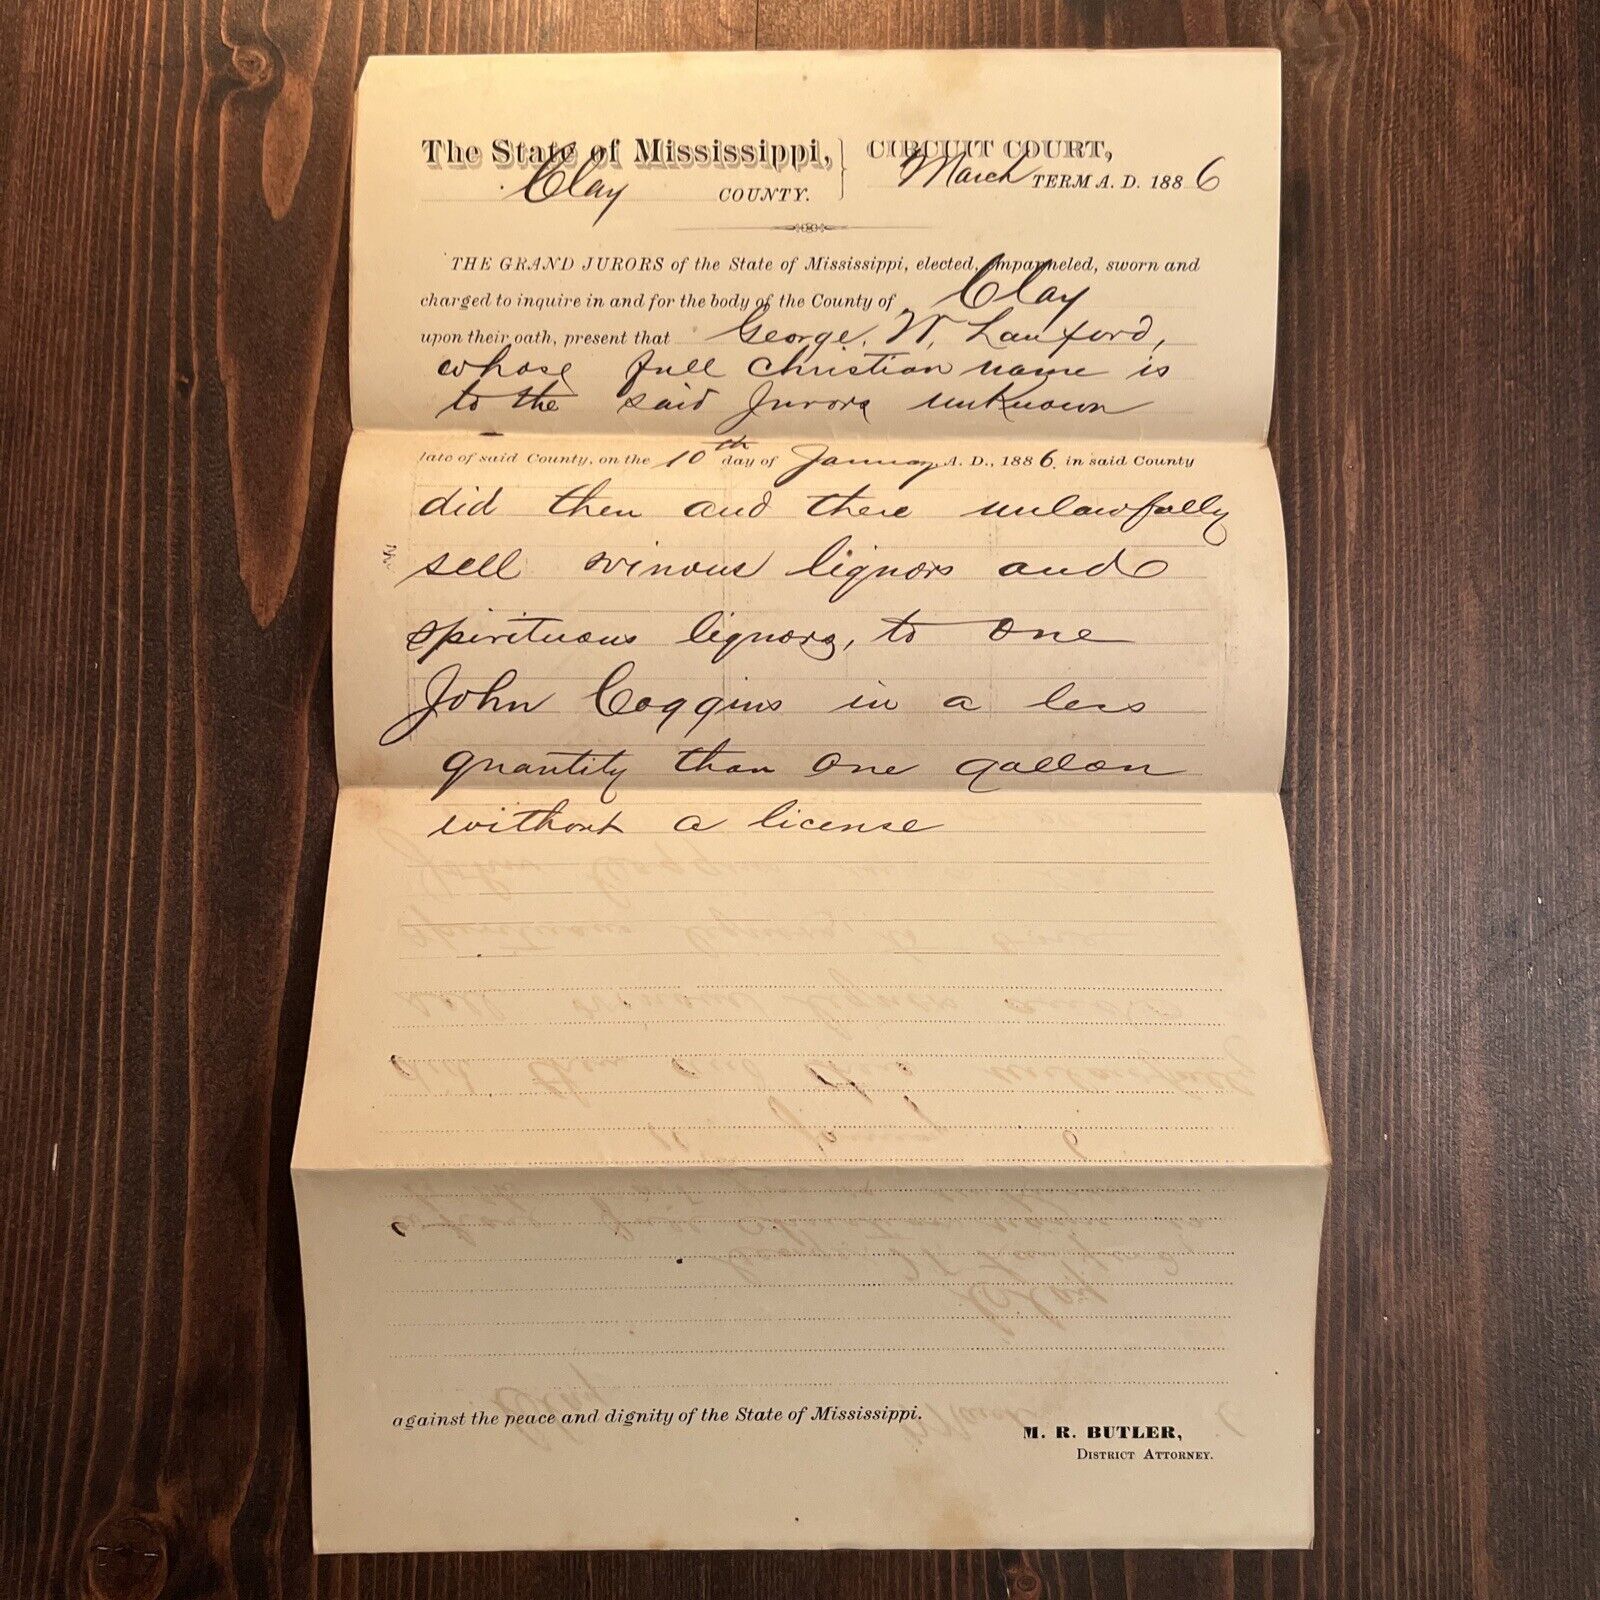 The State of Mississippi, CIRCUIT COURT,
Clay COUNTY. March TERM A. D. 1886
THE GRAND JURORS of the State of Mississippi, elected, impanneled, sworn and
charged to inquire in and for the body of the County of Clay
upon their oath, present that George. W. Lanford,
whose full Christian name is
to the said Jurors unknown
late of said County, on the 10th day of January A. D., 1886. in said County
did then and there unlawfully
sell vinous liquors and
spirituous liquors, to one
John Coggins in a less
quantity than one gallon
without a license
against the peace and dignity of the State of Mississippi.
M. R. BUTLER,
DISTRICT ATTORNEY.